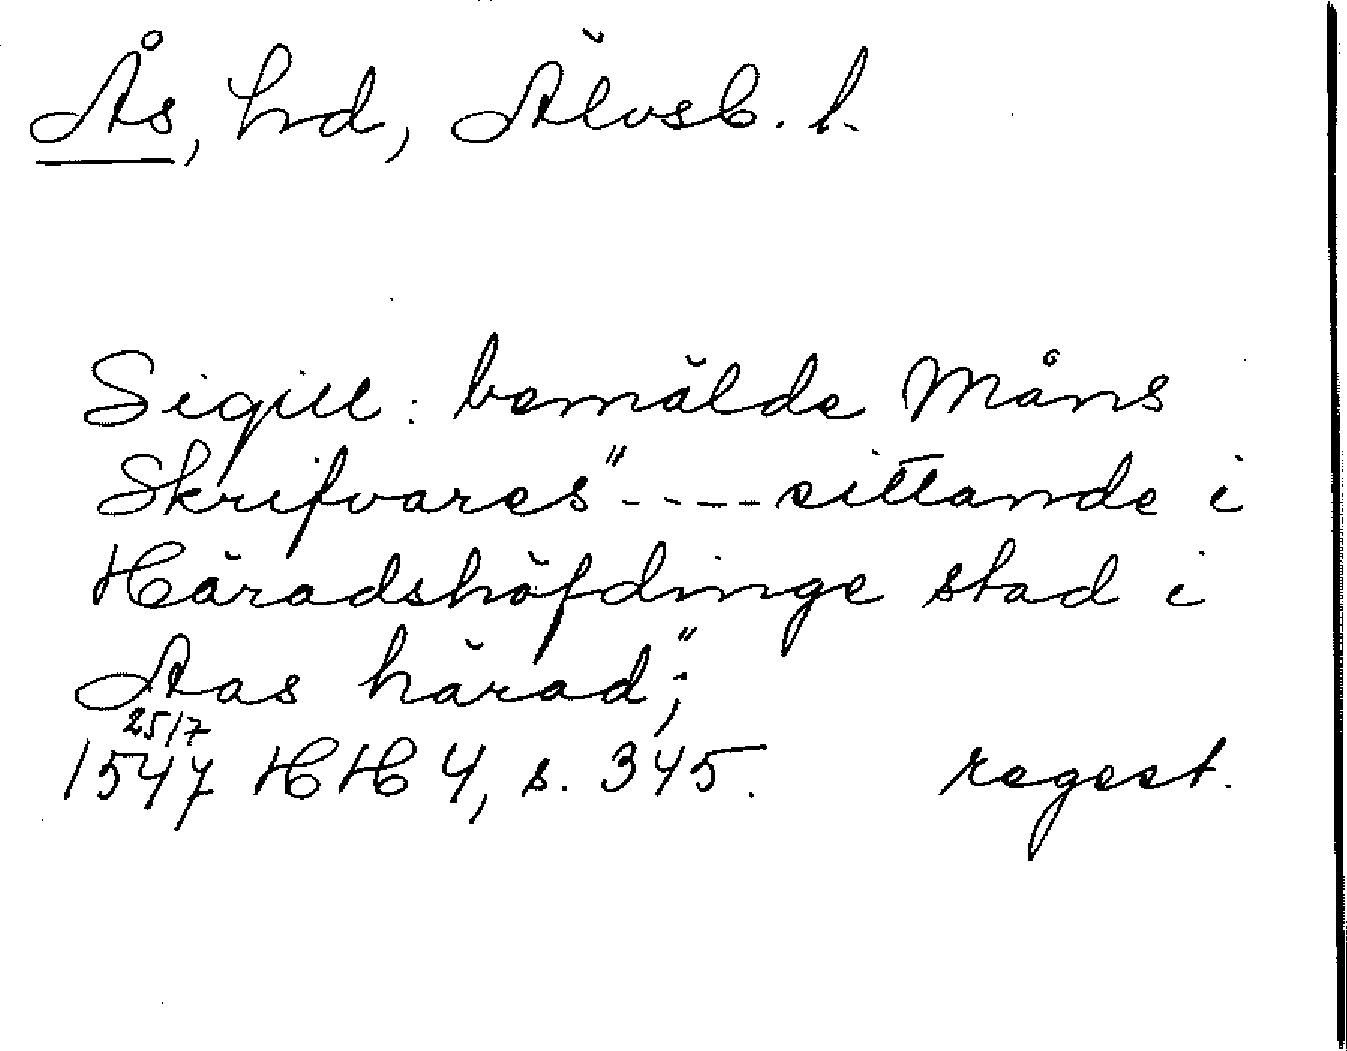 Ås, hd, Älvsb. l.
Sigill: bemälde Måns
Skrifvares" ---- sittande i
Häradshöfdinge stad i
Aas härad;"
25/7
1547 HH 4, s. 345. regest.